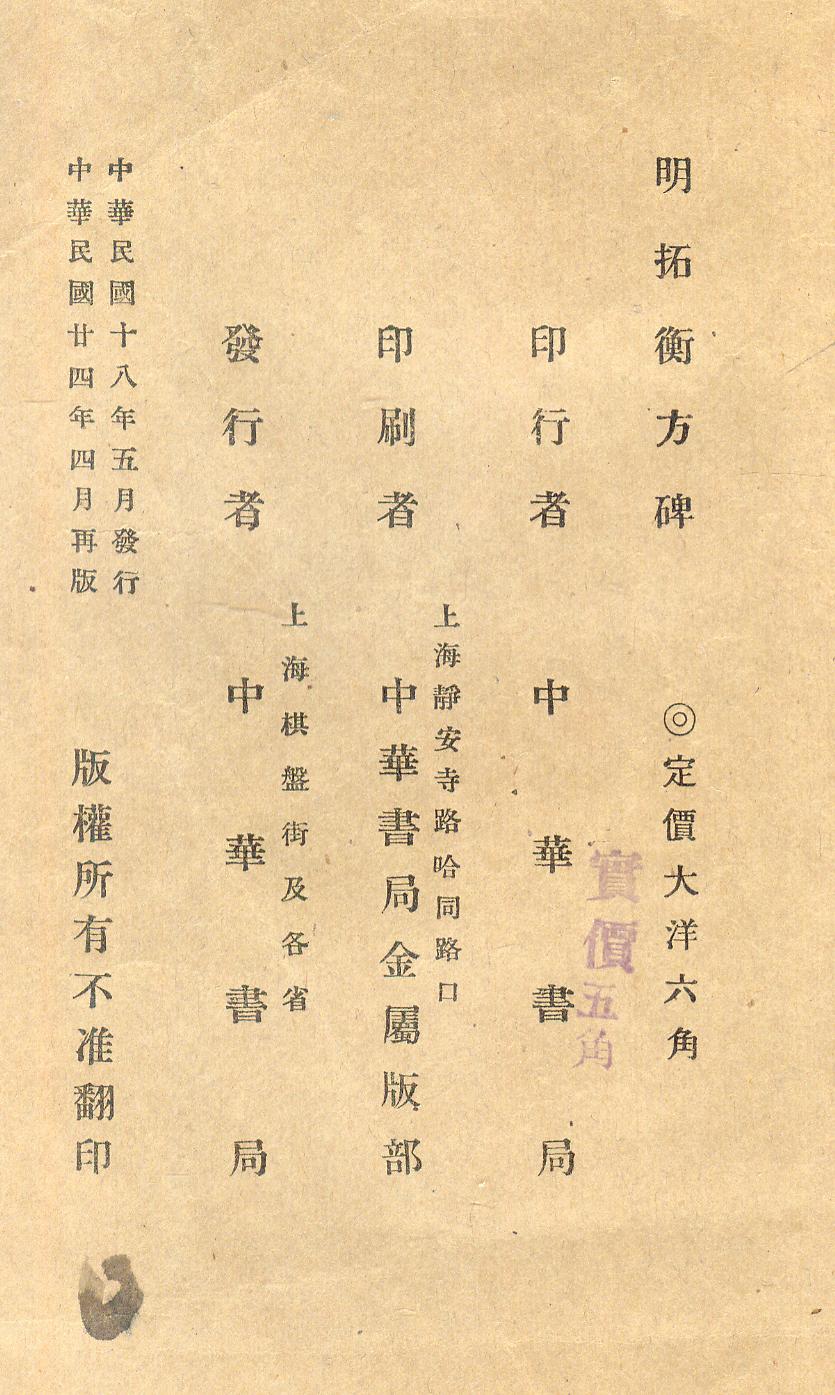 明拓衡方碑
◎定價大洋六角
實價五角
印行者
中華書局
上海靜安寺路哈同路口
印刷者
中華書局金屬版部
上海棋盤街及各省
發行者
中華書局
中華民國十八年五月發行
中華民國廿四年四月再版
版權所有不准翻印